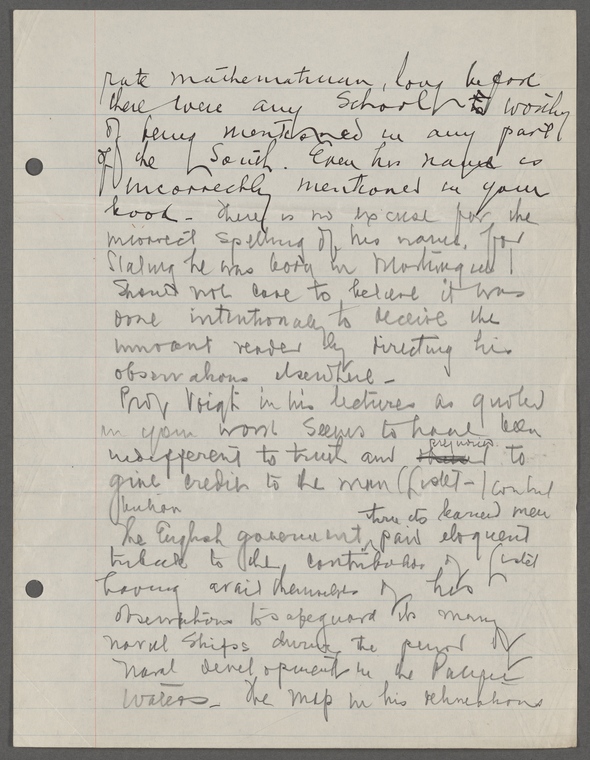 rate mathematician, long before
there were any School worthy
of being mentioned in any part
of the South. Even his name is
incorrectly mentioned in your
book - There is no excuse for the
incorrect spelling of his name, for
Stating he was born in Martinique I
Should not care to believe it was
done intentionally to deceive the
innocent reader by directing his
observations elsewhere -
Prof Voigt in his lectures as quoted
in your work Seems to have been
indifferent to truth and prejudiced to
give credit to the man (Listet -) contri
bution
The English government, thru its learned men paid eloquent
tribute to the contribution of Listet
having avail themselves of his
observations to safeguard its many
naval Ships during the period of
naval development in the Pacific
Waters - The map in his